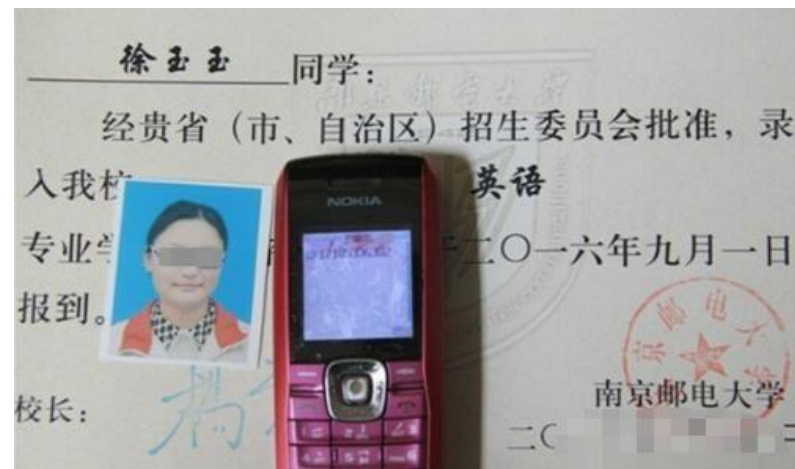 徐玉玉 同学：
经贵省（市、自治区）招生委员会批准，录
入我校 英语
专业学 二〇一六年九月一日
报到。
NOKIA
南京邮电大学
校长：